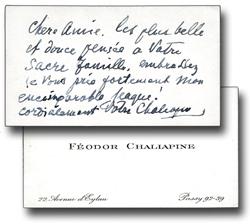 Chere Amie. les plus belle
et douce pensée a Votre
Sacre famille, embrassez
je Vous prie fortement mon
encomparable Jeague!
cordialement Votre Chaliapin
FÉODOR CHALIAPINE
22, Avenue d'Eylau
Passy, 92-39